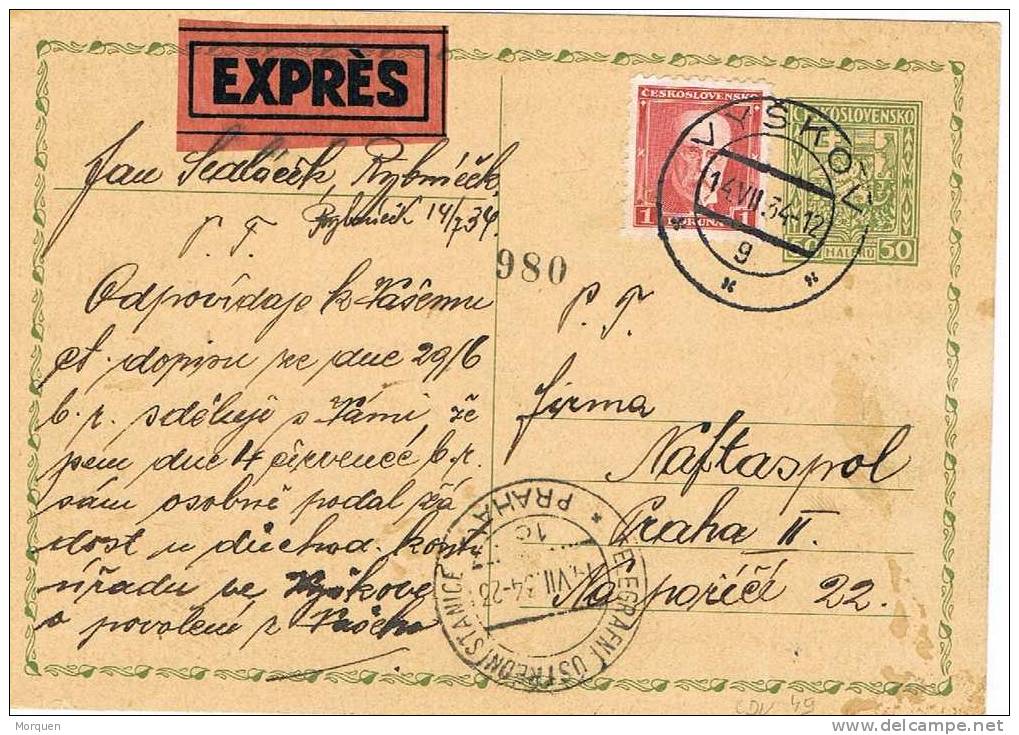 EXPRÈS
ČESKOSLOVENSKO
1 KORUNA 1
ČESKOSLOVENSKO
50 HALÉŘŮ 50
VYŠKOV
14.VII.34-12
9
Jan Sedláček Rybníček
Rybníček 14/7 34.
P. T.
980
Odpovídaje k Vašemu
ct. dopisu ze dne 29/6
b. r. sděluji s Vámi, že
jsem dne 4 července b. r.
sám osobně podal žá
dost u důchod. kontr.
úřadu ve Vyškově
o povolení z Vašeho
P. T.
Firma
Naftaspol
Praha II.
Na poříčí 22.
* PRAHA
TELEGRAFNÍ ÚSTŘEDNÍ STANICE
14.VII.34-23
CDV 49
Morquen
www.delcampe.net